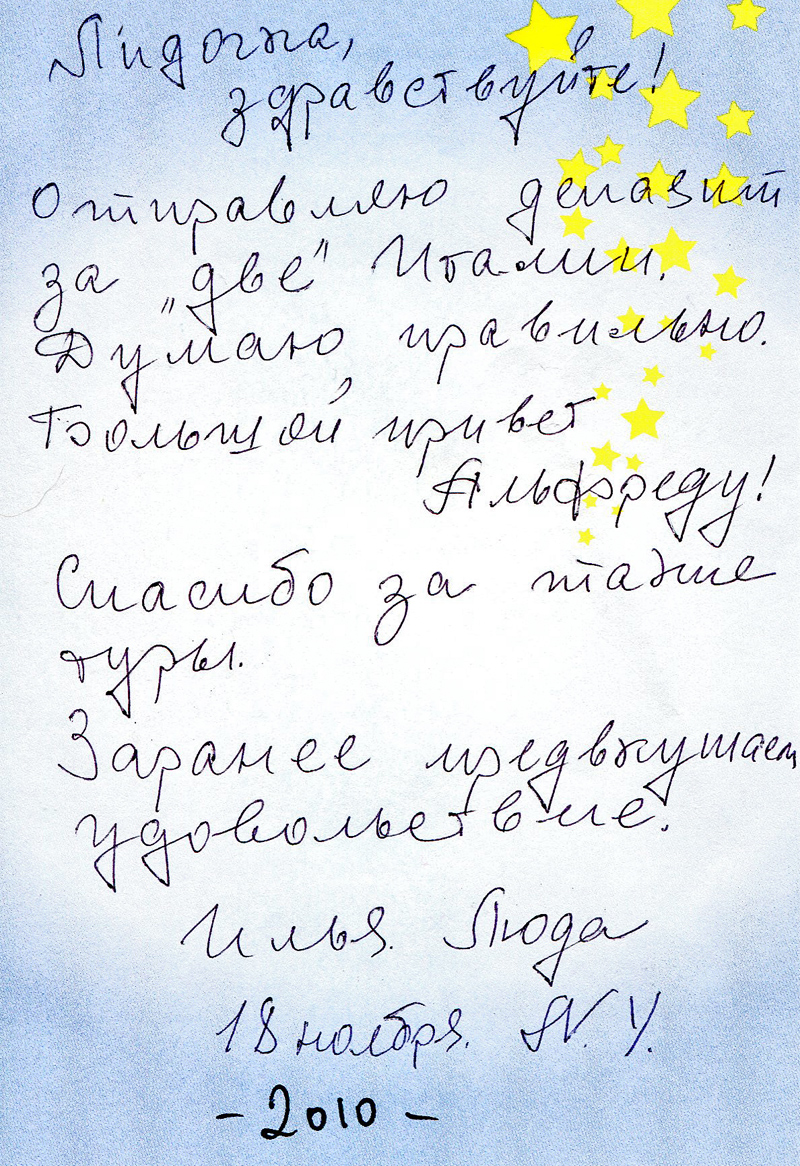 Лидочка,
здравствуйте!
Отправляю депазит
за "две" Италии.
Думаю, правильно.
Большой привет
Альфреду!
Спасибо за такие
туры.
Заранее предвкушаем
удовольствие.
Илья. Люда
18 ноября. N.Y.
- 2010 -